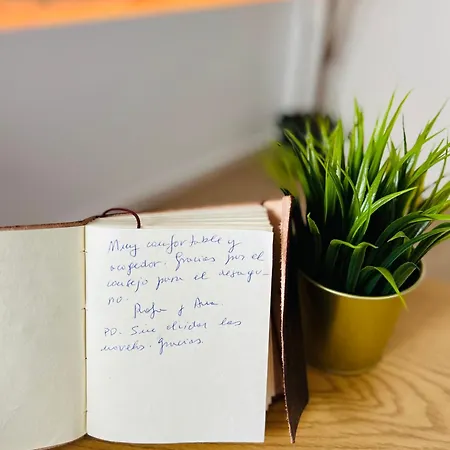 Muy confortable y
acogedor. Gracias por el
consejo para el desayu-
no.
Rafa y Ana
PD. Sin olvidar las
novelas. Gracias.